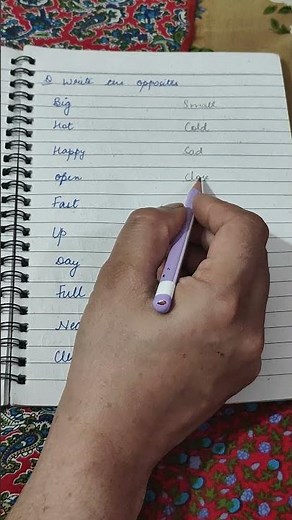 Q Write the opposites
Big Small
Hot Cold
Happy Sad
Open Close
Fast
Up
Day
Full